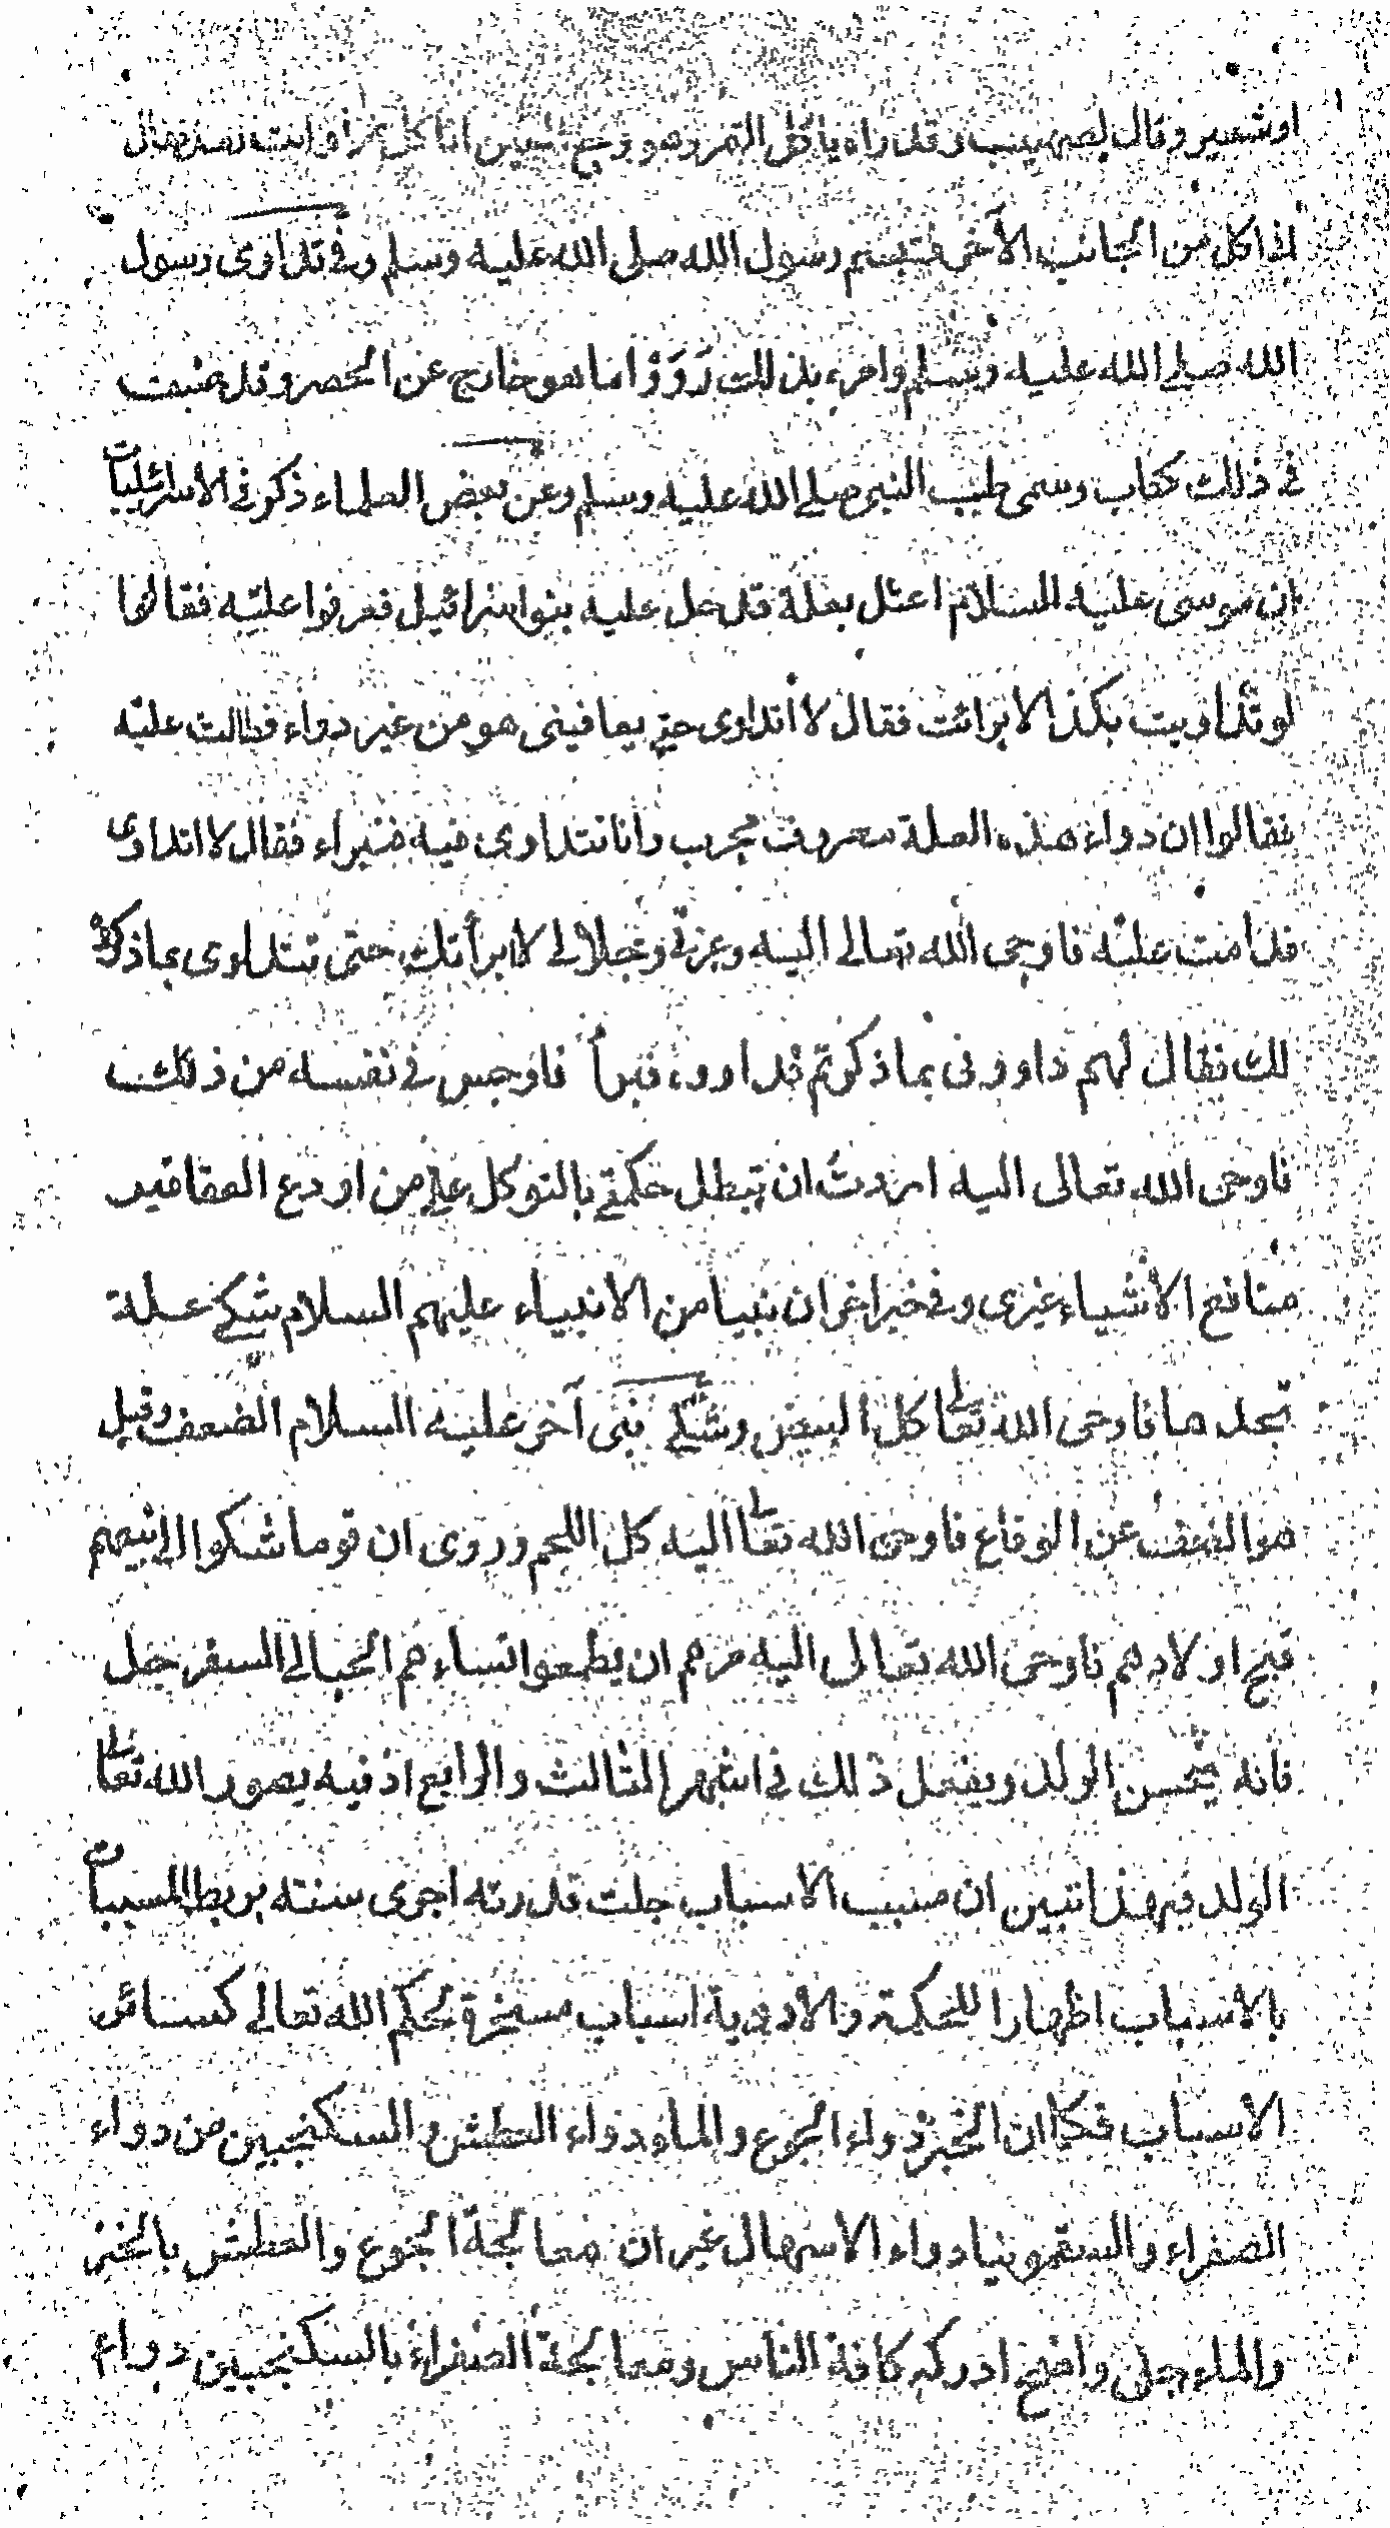 اوشعير وقال لصهيب وقد راه ياكل التمر وهو وجع العين اتاكل تمرا وانت رمد فقال
انما اكل من الجانب الآخر فتبسم رسول الله صلى الله عليه وسلم وفي تداوى رسول
الله صلى الله عليه وسلم وامره بذلك رَوَوْا ما هو خارج عن الحصر وقد صنفت
في ذلك كتاب وسمى طب النبى صلى الله عليه وسلم وعن بعض العلماء ذكر في الاسرائليات
ان موسى عليه السلام اعتل بعلة فدخل عليه بنو اسرائيل فعرفوا علته فقالوا
لو تداويت بكذا لابرائت فقال لا أتداوى حتى يعافينى هو من غير دواء فطالت علته
فقالوا ان دواء هذه العلة معروف مجرب وانا نتداوى فيه فنبراء فقال لا اتداوى
فدامت علته فاوحى الله تعالى اليه وعزتى وجلالي لا ابرأتك حتى تتداوى بما ذكروه
لك فقال لهم داوونى بما ذكرتم فداووه فبرأ فاوجس في نفسه من ذلك
فاوحى الله تعالى اليه اردت ان تبطل حكمتى بالتوكل علي من اودع العقاقير
منافع الأشياء غيرى وفي خبر اخر ان نبيا من الانبياء عليهم السلام شكى علة
تجدها فاوحى الله تعالى كل البيض وشكى نبى آخر عليه السلام الضعف وقيل
هو الضعف عن الوقاع فاوحى الله تعالى اليه كل اللحم وروى ان قوما شكوا الى نبيهم
قبح اولادهم فاوحى الله تعالى اليه مرهم ان يطعموا نساءهم الحبالى السفرجل
فانه يحسن الولد ويفعل ذلك في اشهر الثالث والرابع اذ فيه يصور الله تعالى
الولد فبهذا تبين ان مسبب الاسباب جلت قدرته اجرى سنته بربط المسببات
بالاسباب اظهارا للحكمة والادوية اسباب مسخرة بحكم الله تعالى كسائر
الاسباب فكما ان الخبز دواء الجوع والماء دواء العطش والسكنجبين من دواء
الصفراء والسقمونيا دواء الاسهال غير ان معالجة الجوع والعطش بالخبز
والماء جلى واضح ادركه كافة الناس ومعالجة الصفراء بالسكنجبين دواء